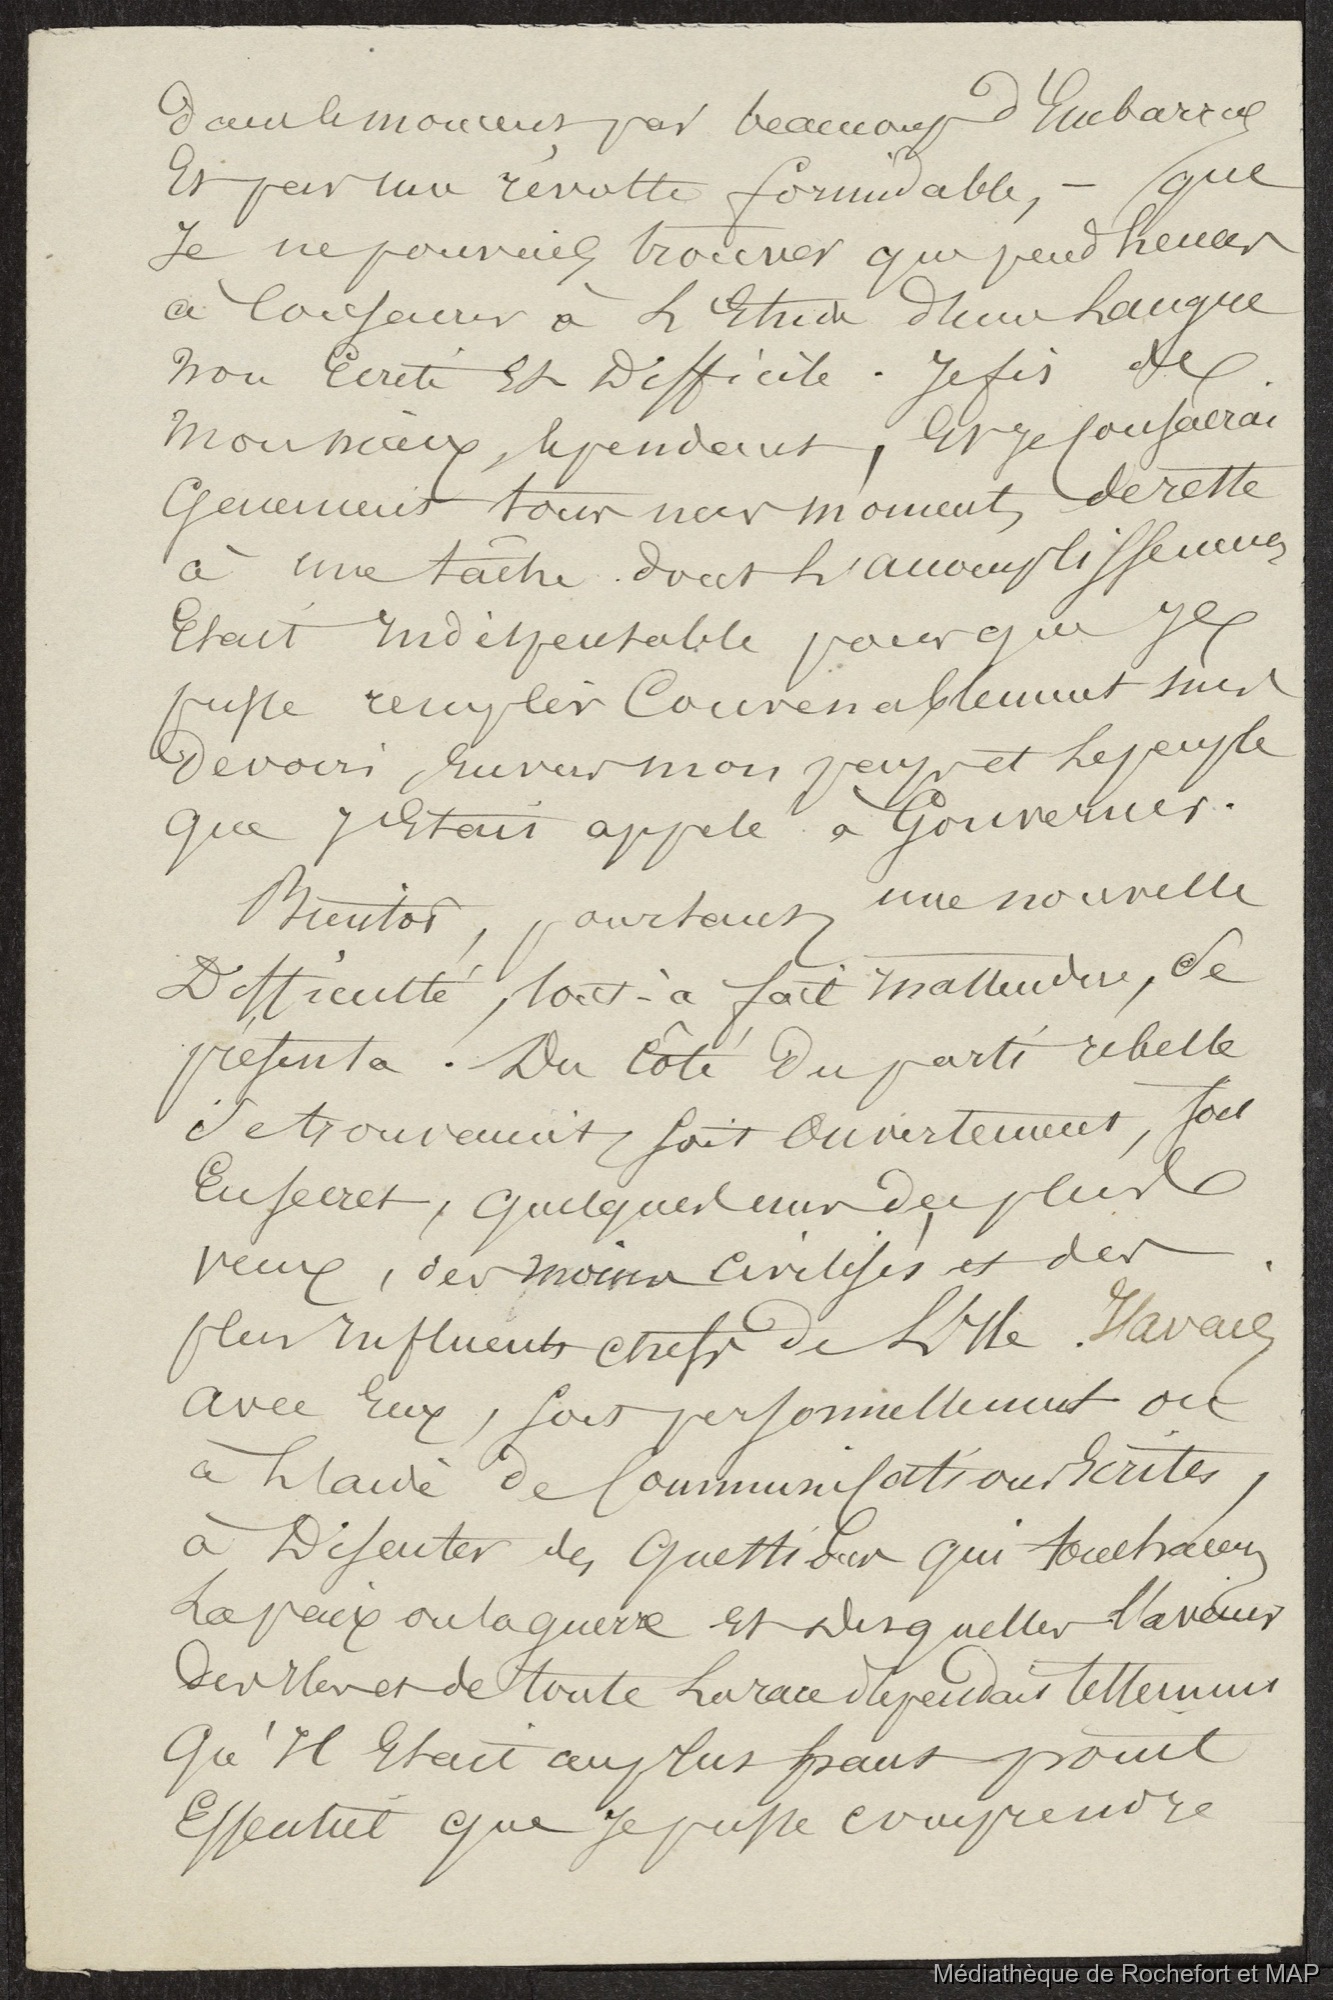 dans le moment par beaucoup d'Embarras
Et par une révolte formidable, – que
Je ne pouvais trouver que peu d'heures
à Consacrer à L'Etude d'une Langue
non Ecrite Et Difficile. Je fis de
mon mieux, cependant, Et je Consacrai
tous mes moments de reste
à une tâche dont L'accomplissement
Etait Indispensable pour que Je
pusse remplir Convenablement mes
Devoirs Envers mon pays et Le peuple
que J'Etais appelé à Gouverner.
Bientôt, pourtant une nouvelle
Difficulté, tout-à fait Inattendue, Se
présenta. Du Côté Du parti rebelle
Se trouvaient, soit Ouvertement, soit
En secret, quelques uns des plus
vieux, des moins Civilisés et des
plus Influents chefs de L'Ile. J'avais
avec Eux, soit personnellement ou
à L'aide de Communications Ecrites,
à Discuter des questions qui touchaient
La paix ou la guerre Et Desquelles l'avenir
Des Iles et de toute La race dépendait tellement
Qu'Il Etait au plus haut point
Essentiel que Je pusse comprendre
Médiathèque de Rochefort et MAP